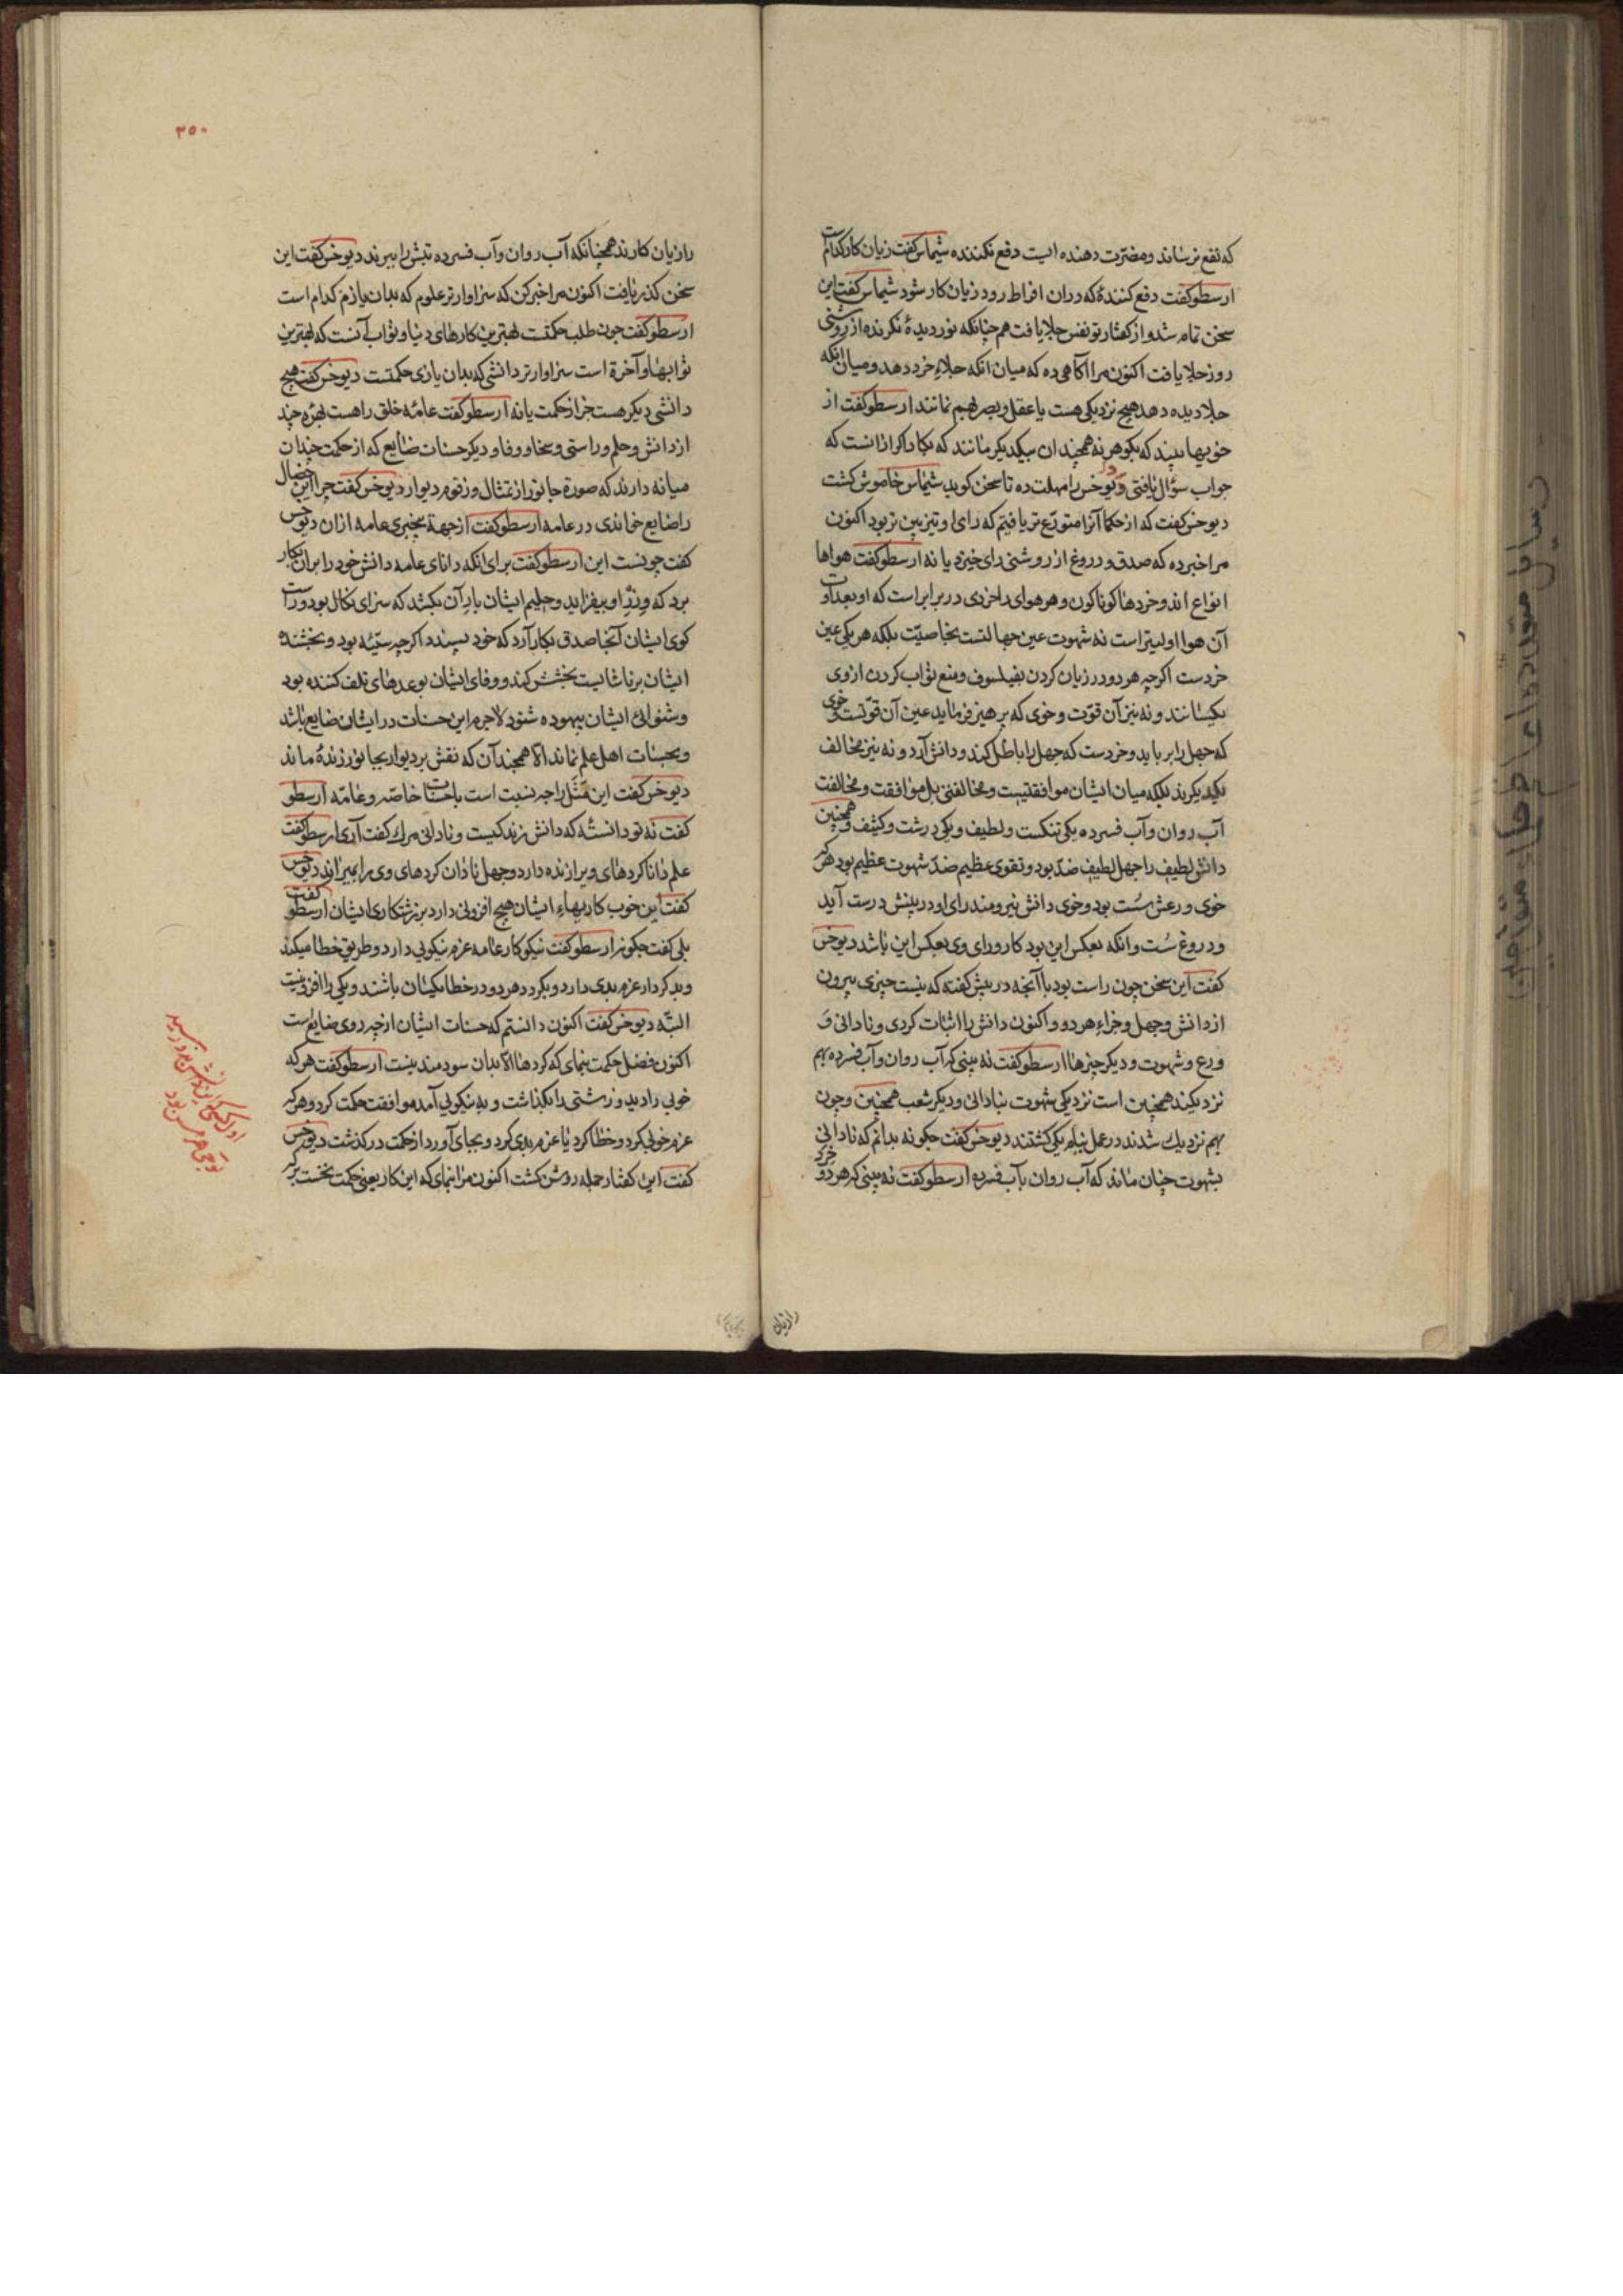 که نفع نرساند و مضرّت دهنده ایست دفع نکننده شیماس گفت زیان کار کدامست
ارسطو گفت دفع کنندهٔ که دران افراط رود زیان کار شود شیماس گفت این
سخن تمام شد و از گفتار تو نفس جلا یافت هم چنانکه نور دیدهٔ نکرنده از روشنی
روز جلا یافت اکنون مرا آکاهی ده که میان انکه جلاءِ خرد دهد و میان انکه
جلا دیده دهد هیچ نزدیکی هست یا عقل و بصر بهم نمانند ارسطو گفت از
جواب سؤال یافتی و دیوخس را مهلت ده تا سخن کوید شیماس خاموش کشت
دیوخس کفت که از حکما آنرا متورّع تر یافتیم که رای او تیزبین تر بود اکنون
مرا خبر ده که صدق و دروغ از روشنی رای خیزد یا نه ارسطو کفت هواها
انواع اند و خردها کوناکون و هر هوای را خردی در برابر است که او بعداوت
آن هوا اولیتر است نه شهوت عین جهالتست بخاصیّت بلکه هر یکی عین
خردست اکرچه هر دو در زیان کردن بفیلسوف و منع ثواب کردن ازوی
یکسانند و نه نیز آن قوّت و خوی که پرهیز فرماید عین آن قوّتست و خوی
که جهل را برباید و خردست که جهل را باطل کند و دانش آرد و نه نیز مخالف
یکدیکرند بلکه میان ایشان موافقتیست و مخالفتی بل موافقت و مخالفت
آب روان و آب فسرده یکی تنکست و لطیف و یکی درشت و کثیف و همچنین
دانش لطیف را جهل لطیف ضدّ بود و تقوی عظیم ضدّ شهوت عظیم بود هرکه
خوی ورعش سُست بود و خوی دانش نیرومند رای او در بینش درست آید
و در ورع سُست و انکه بعکس این بود کار و رای وی بعکس این باشد دیوخس
کفت این سخن چون راست بود با آنچه در پیش کفته که نیست چیزی بیرون
از دانش و جهل و جزاءِ هر دو و اکنون دانش را اثبات کردی و نادانی وَ
ورع و شهوت و دیکر چیزها ارسطو کفت نه بینی که آب روان و آب فسرده بهم
نزدیکند همچنین است نزدیکی شهوت بنادانی و دیکر شعب همچنین و چون
بهم نزدیک شدند در عمل بنام یکی کشتند دیوخس کفت چکونه بدانم که نادانی
بشهوت چنان ماند که آب روان بآب فسرده ارسطو کفت نه بینی که هر دو خرد
رازیان
۳۵۰
را زیان کارند همچنانکه آب روان و آب فسرده تبش را ببرند دیوخس کفت این
سخن کذر یافت اکنون مرا خبر کن که سزاوارتر علوم که بدان یازم کدام است
ارسطو کفت چون طلب حکمت بهترین کارهای دنیا و ثواب آنست که بهترین
ثوابها و آخرة است سزاوارتر دانشی که بدان یازی حکمتست دیوخس کفت هیچ
دانشی دیکر هست جز از حکمت یا نه ارسطو کفت عامّه خلق را هست بهره چند
از دانش و حلم و راستی و سخا و وفا و دیکر حسنات ضایع که از حکمت چندان
میانه دارند که صورة جانور از تمثال و رقوم دیوار دیوخس کفت چرا این خصال
را ضایع خواندی در عامه ارسطو کفت از جهة بیخبری عامه ازان دیوخس
کفت چونست این ارسطو کفت برای انکه دانای عامه دانش خود را بران بکار
برد که وزر او بیفزاید و حلیم ایشان بار آن بکشد که سزای نکال بود و راست
کوی ایشان آنجا صدق بکار آرد که خود پسندد اکرچه سیّئه بود و بخشنده
ایشان بر ناشایست بخشش کند و وفای ایشان بوعدهای تلف کننده بود
و شنوائی ایشان بیهوده شنود لاجرم این حسنات در ایشان ضایع باشد
و بحسنات اهل علم نماند الّا همچند آن که نقش بر دیوار بجانور زندهٔ ماند
دیوخس کفت این مَثَل را چه نسبت است با حسنات خاصّه و عامّه ارسطو
کفت نه تو دانستهٔ که دانش زندکیست و نادانی مرک کفت آری ارسطو کفت
علم دانا کردهای ویرا زنده دارد و جهل نادان کردهای وی را بمیراند دیوخس
کفت این خوب کاریهاءِ ایشان هیچ افزونی دارد بر زشتکاری ایشان ارسطو کفت
بلی کفت چکونه ارسطو کفت نیکوکار عامه عزم نیکویی دارد و طریق خطا میکند
و بدکردار عزم بدی دارد و بکردد هر دو در خطا یکسان باشند و یکی را افزونیست
البتّه دیوخس کفت اکنون دانستم که حسنات ایشان از چه روی ضایع است
اکنون فضل حکمت بنمای که کردها الّا بدان سودمند نیست ارسطو کفت هر که
خوبی را دید و زشتی را بکذاشت و به نیکویی آمد موافقت حکمت کرد و هر که
عزم خوبی کرد و خطا کرد یا عزم بدی کرد و بجای آورد از حکمت در کذشت دیوخس
کفت این کفتار جمله روشن کشت اکنون مرا بنمای که این کار یعنی حکمت نخست بر که